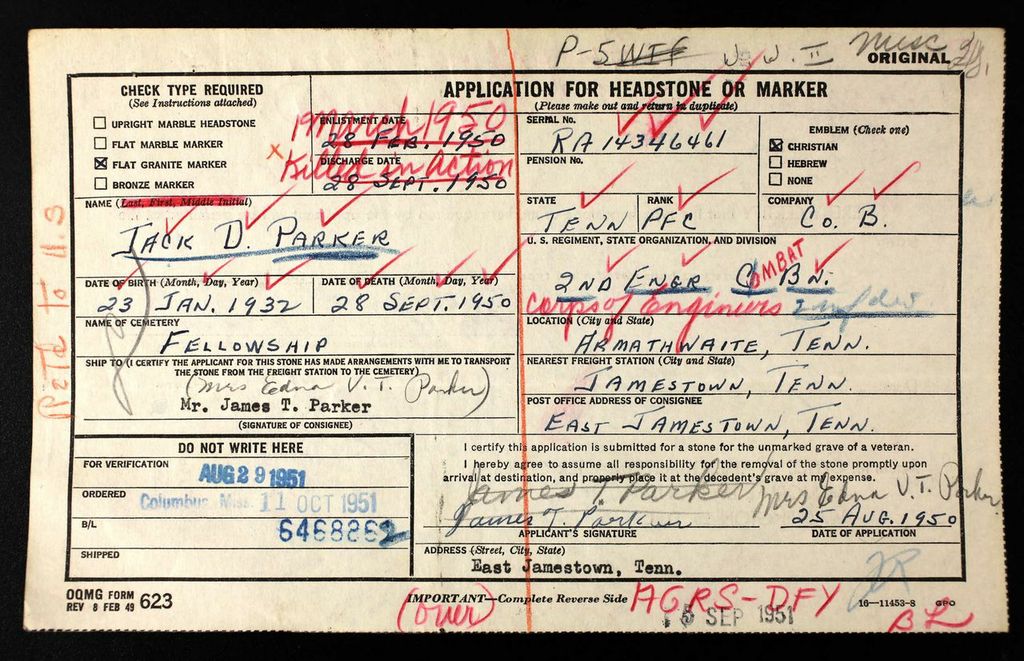 P-5 WIF W.W. II Misc
ORIGINAL
CHECK TYPE REQUIRED
(See Instructions attached)
UPRIGHT MARBLE HEADSTONE
FLAT MARBLE MARKER
☒ FLAT GRANITE MARKER
BRONZE MARKER
APPLICATION FOR HEADSTONE OR MARKER
(Please make out and return in duplicate)
ENLISTMENT DATE
1 March 1950
28 FEB. 1950
DISCHARGE DATE
x Killed in Action
28 SEPT. 1950
SERIAL No.
RA 14346461
PENSION No.
EMBLEM (Check one)
☒ CHRISTIAN
HEBREW
NONE
NAME (Last, First, Middle Initial)
JACK D. PARKER
STATE
TENN
RANK
PFC
COMPANY
Co. B.
U. S. REGIMENT, STATE ORGANIZATION, AND DIVISION
2ND ENGR COMBAT BN.
Corps of Engineers 2 Inf Div
DATE OF BIRTH (Month, Day, Year)
23 JAN. 1932
DATE OF DEATH (Month, Day, Year)
28 SEPT. 1950
NAME OF CEMETERY
FELLOWSHIP
LOCATION (City and State)
ARMATHWAITE, TENN.
SHIP TO (I CERTIFY THE APPLICANT FOR THIS STONE HAS MADE ARRANGEMENTS WITH ME TO TRANSPORT
THE STONE FROM THE FREIGHT STATION TO THE CEMETERY)
(Mrs Edna V. T. Parker)
Mr. James T. Parker
(SIGNATURE OF CONSIGNEE)
NEAREST FREIGHT STATION (City and State)
JAMESTOWN, TENN.
POST OFFICE ADDRESS OF CONSIGNEE
EAST JAMESTOWN, TENN.
DO NOT WRITE HERE
FOR VERIFICATION
AUG 29 1951
ORDERED
Columbus, Miss. 11 OCT 1951
B/L
6468262
SHIPPED
I certify this application is submitted for a stone for the unmarked grave of a veteran.
I hereby agree to assume all responsibility for the removal of the stone promptly upon
arrival at destination, and properly place it at the decedent's grave at my expense.
James T. Parker Mrs Edna V. T. Parker
James T. Parker
25 AUG. 1950
APPLICANT'S SIGNATURE
DATE OF APPLICATION
ADDRESS (Street, City, State)
East Jamestown, Tenn.
OQMG FORM
REV 8 FEB 49 623
(over)
IMPORTANT—Complete Reverse Side
AGRS-DFY
5 SEP 1951
16—11453-8 GPO
BL